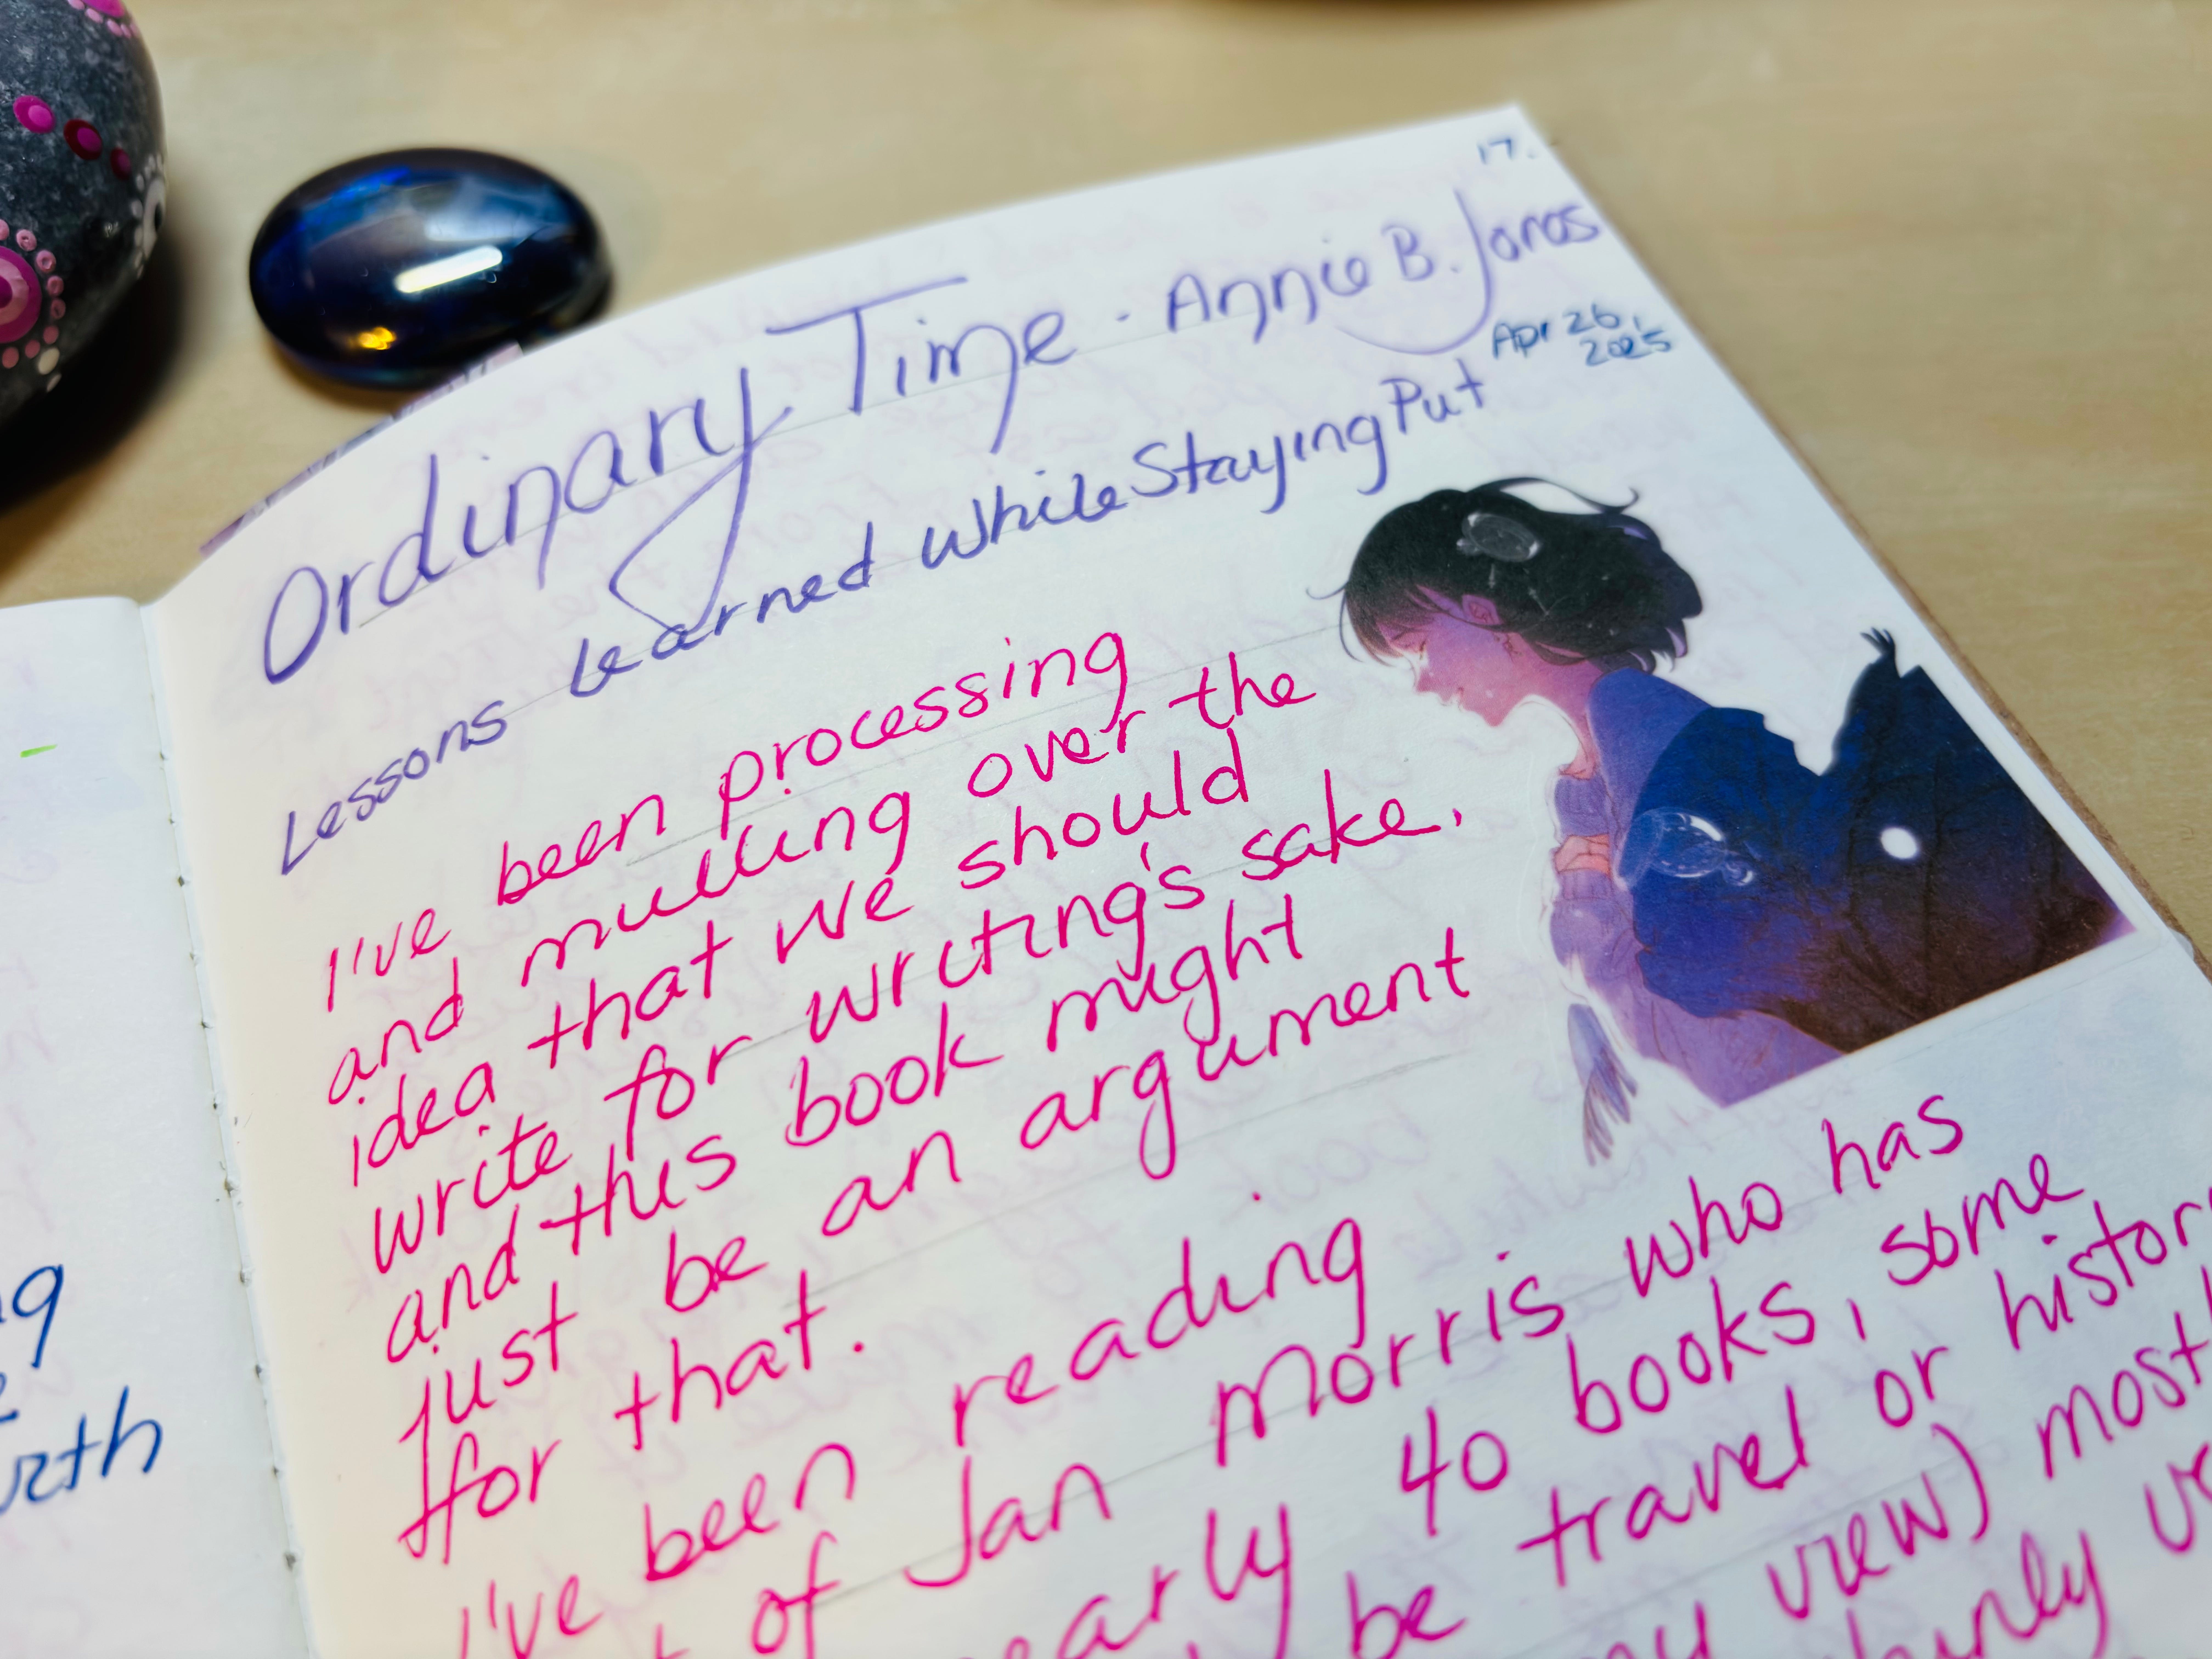 17.
Ordinary Time - Annie B. Jones
Apr 26,
2025
Lessons Learned While Staying Put
I've been processing
and mulling over the
idea that we should
write for writing's sake,
and this book might
just be an argument
for that.
I've been reading
of Jan Morris who has
40 books, some
be travel or history
view) most